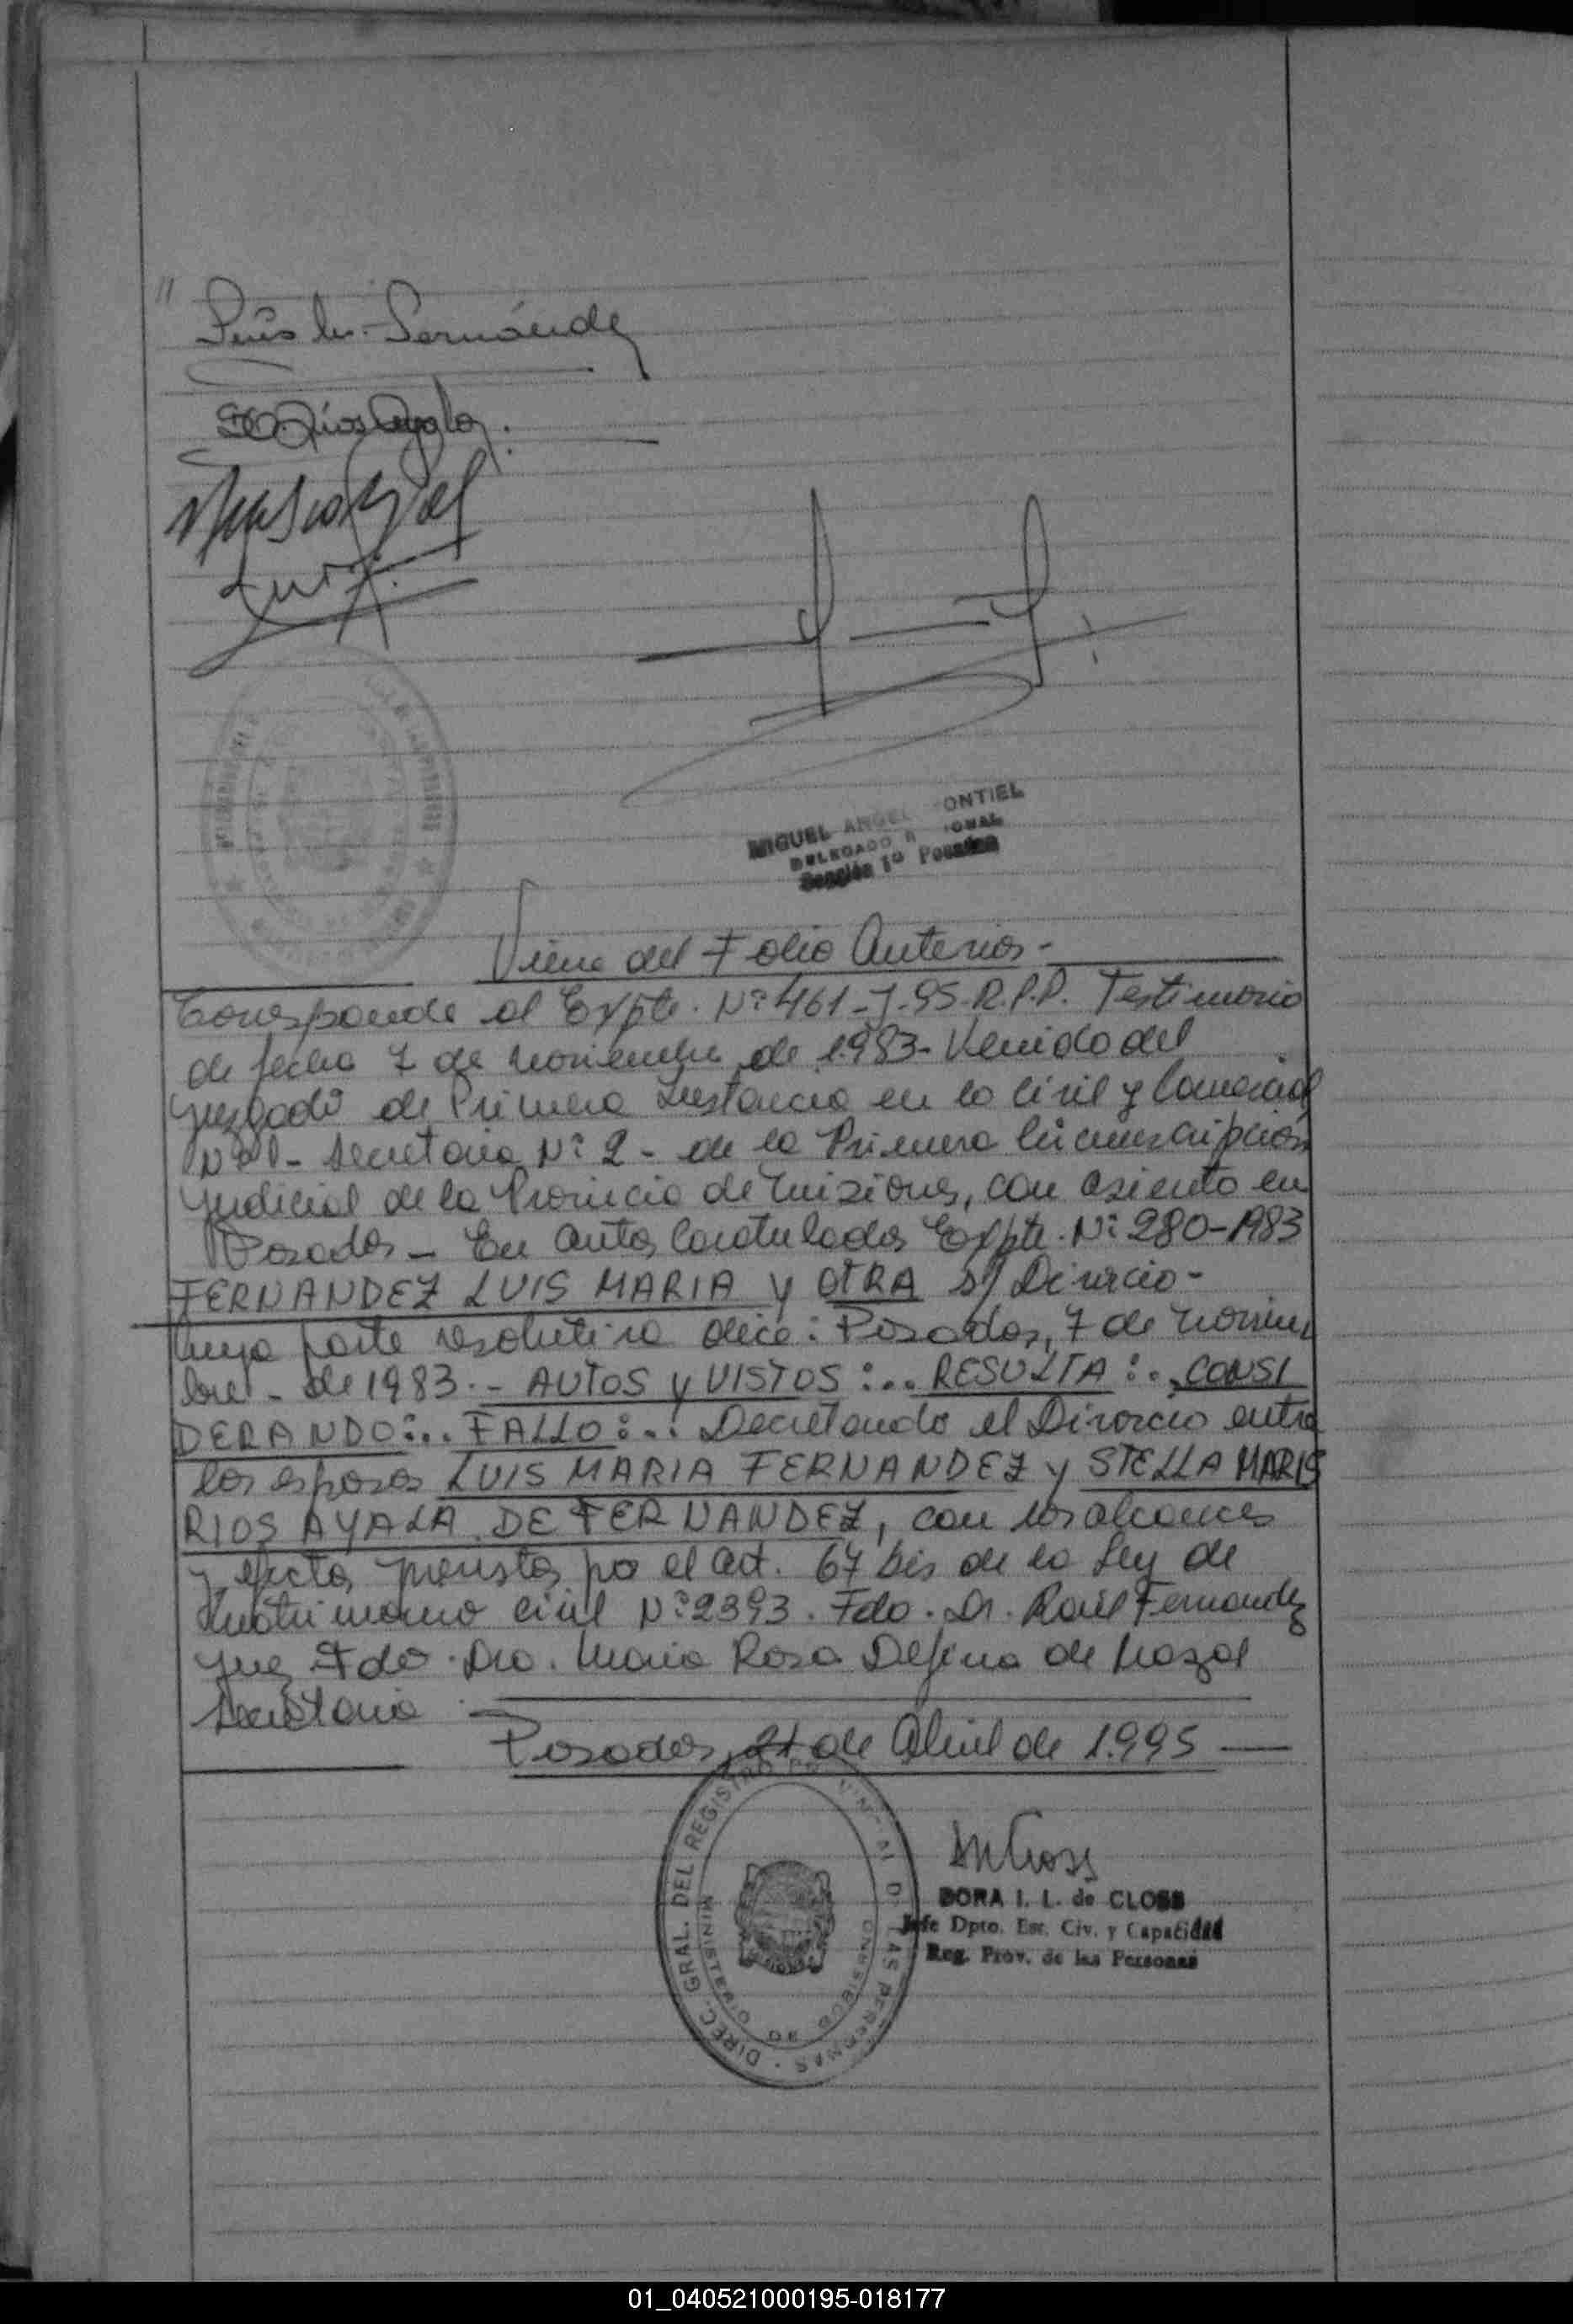 "
Luis M. Fernández
Rios Ayala.
MIGUEL ANGEL ONTIEL
DELEGADO R IONAL
Sección 1º Posadas
Viene del Folio Anterior-
Corresponde al Expte. Nº 461-J-95-R.P.P. Testimonio
de fecha 7 de noviembre de 1.983- Venido del
Juzgado de Primera Instancia en lo Civil y Comercial
Nº 1- Secretaria Nº 2- de la Primera Circunscripción
Judicial de la Provincia de Misiones, con asiento en
Posadas- En autos Caratulados Expte. Nº 280-1983
FERNANDEZ LUIS MARIA y OTRA s/ Divorcio-
Cuya parte resolutiva dice: Posadas, 7 de noviem
bre- de 1983.- AUTOS y VISTOS:... RESULTA:.. CONSI
DERANDO:... FALLO:... Decretando el Divorcio entre
los esposos LUIS MARIA FERNANDEZ y STELLA MARIS
RIOS AYALA DE FERNANDEZ, con los alcances
y efectos previstos po el art. 67 bis de la Ley de
Matrimonio civil Nº 2393. Fdo. Dr. Raúl Fernandez
Juez Fdo. Dra. Maria Rosa Defina de
Secretaria.
Posadas, 21 de Abril de 1.995
DIREC. GRAL. DEL REGISTRO PROVINCIAL DE LAS PERSONAS
MINISTERIO DE GOBIERNO
DORA I. L. de CLOSS
Jefe Dpto. Est. Civ. y Capacidad
Reg. Prov. de las Personas
01_040521000195-018177